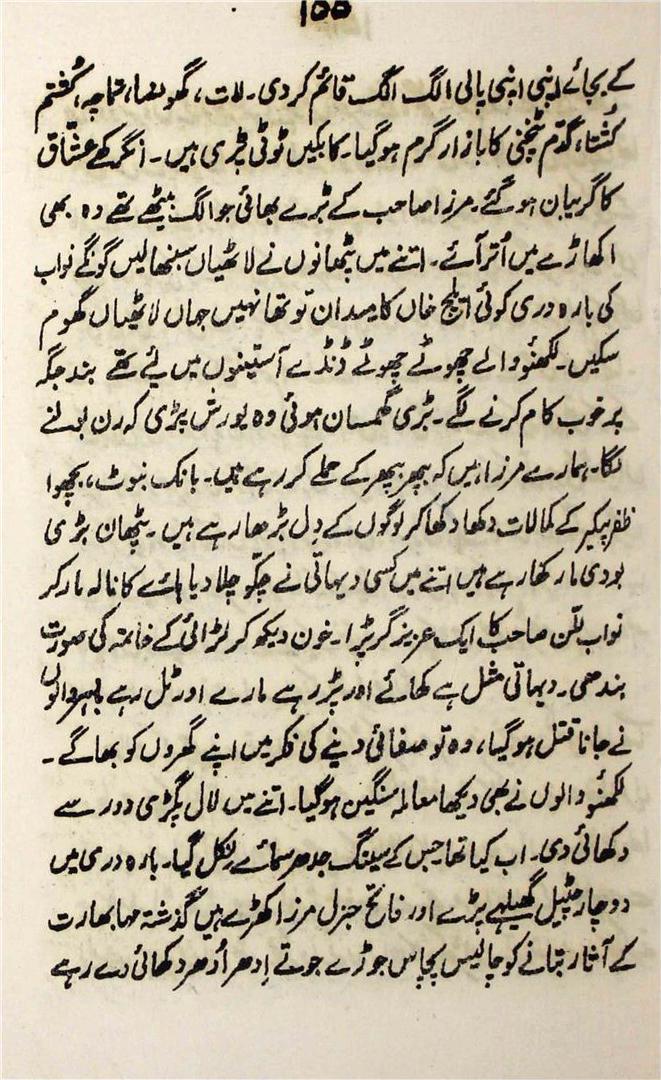 ۱۵۵
کے بجائے اپنی اپنی پالی الگ الگ قائم کردی۔ لات، گھونسا، تماچہ، گھتم
گُتھا، گدّم پٹخنی کا بازار گرم ہوگیا۔ کابکیں ٹوٹی پڑی ہیں۔ انگرکھے عشّاق
کا گریبان ہوگئے۔ مرزا صاحب کے بڑے بھائی جو الگ بیٹھے تھے وہ بھی
اکھاڑے میں اُتر آئے۔ اتنے میں پٹھانوں نے لاٹھیاں سنبھالیں گونگے نواب
کی بارہ دری کوئی ایلچ خاں کا میدان تو تھا نہیں جہاں لاٹھیاں گھوم
سکیں۔ لکھنؤ والے چھوٹے چھوٹے ڈنڈے آستینوں میں لئے تھے بند جگہ
پر خوب کام کرنے لگے۔ بڑی گھمسان ہوئی وہ یورش پڑی کہ رن بولنے
لگا۔ ہمارے مرزا ہیں کہ بپھر بپھر کے حملے کر رہے ہیں۔ بانک بنوٹ، بچھوا
ظفر پیکر کے کمالات دکھا دکھا کر لوگوں کے دل بڑھا رہے ہیں۔ پٹھان بڑی
بودی مار کھا رہے ہیں اتنے میں کسی دیہاتی نے چکّو چلا دیا ہائے کا نالہ مار کر
نواب بلّن صاحب کا ایک عزیز گر پڑا۔ خون دیکھ کر لڑائی کے خاتمہ کی صورت
بندھی۔ دیہاتی مثل ہے کھائے اور پڑ رہے مارے اور ٹل رہے باہر والوں
نے جانا قتل ہوگیا، وہ تو صفائی دینے کی فکر میں اپنے گھروں کو بھاگے۔
لکھنؤ والوں نے بھی دیکھا معاملہ سنگین ہوگیا۔ اتنے میں لال پگڑی دور سے
دکھائی دی۔ اب کیا تھا جس کے سینگ جدھر سمائے نکل گیا۔ بارہ دری میں
دو چار گھیلے پڑے اور فاتح جنرل مرزا کھڑے ہیں گذشتہ مہابھارت
کے آثار بتانے کو چالیس پچاس جوڑے جوتے اِدھر اُدھر دکھائی دے رہے